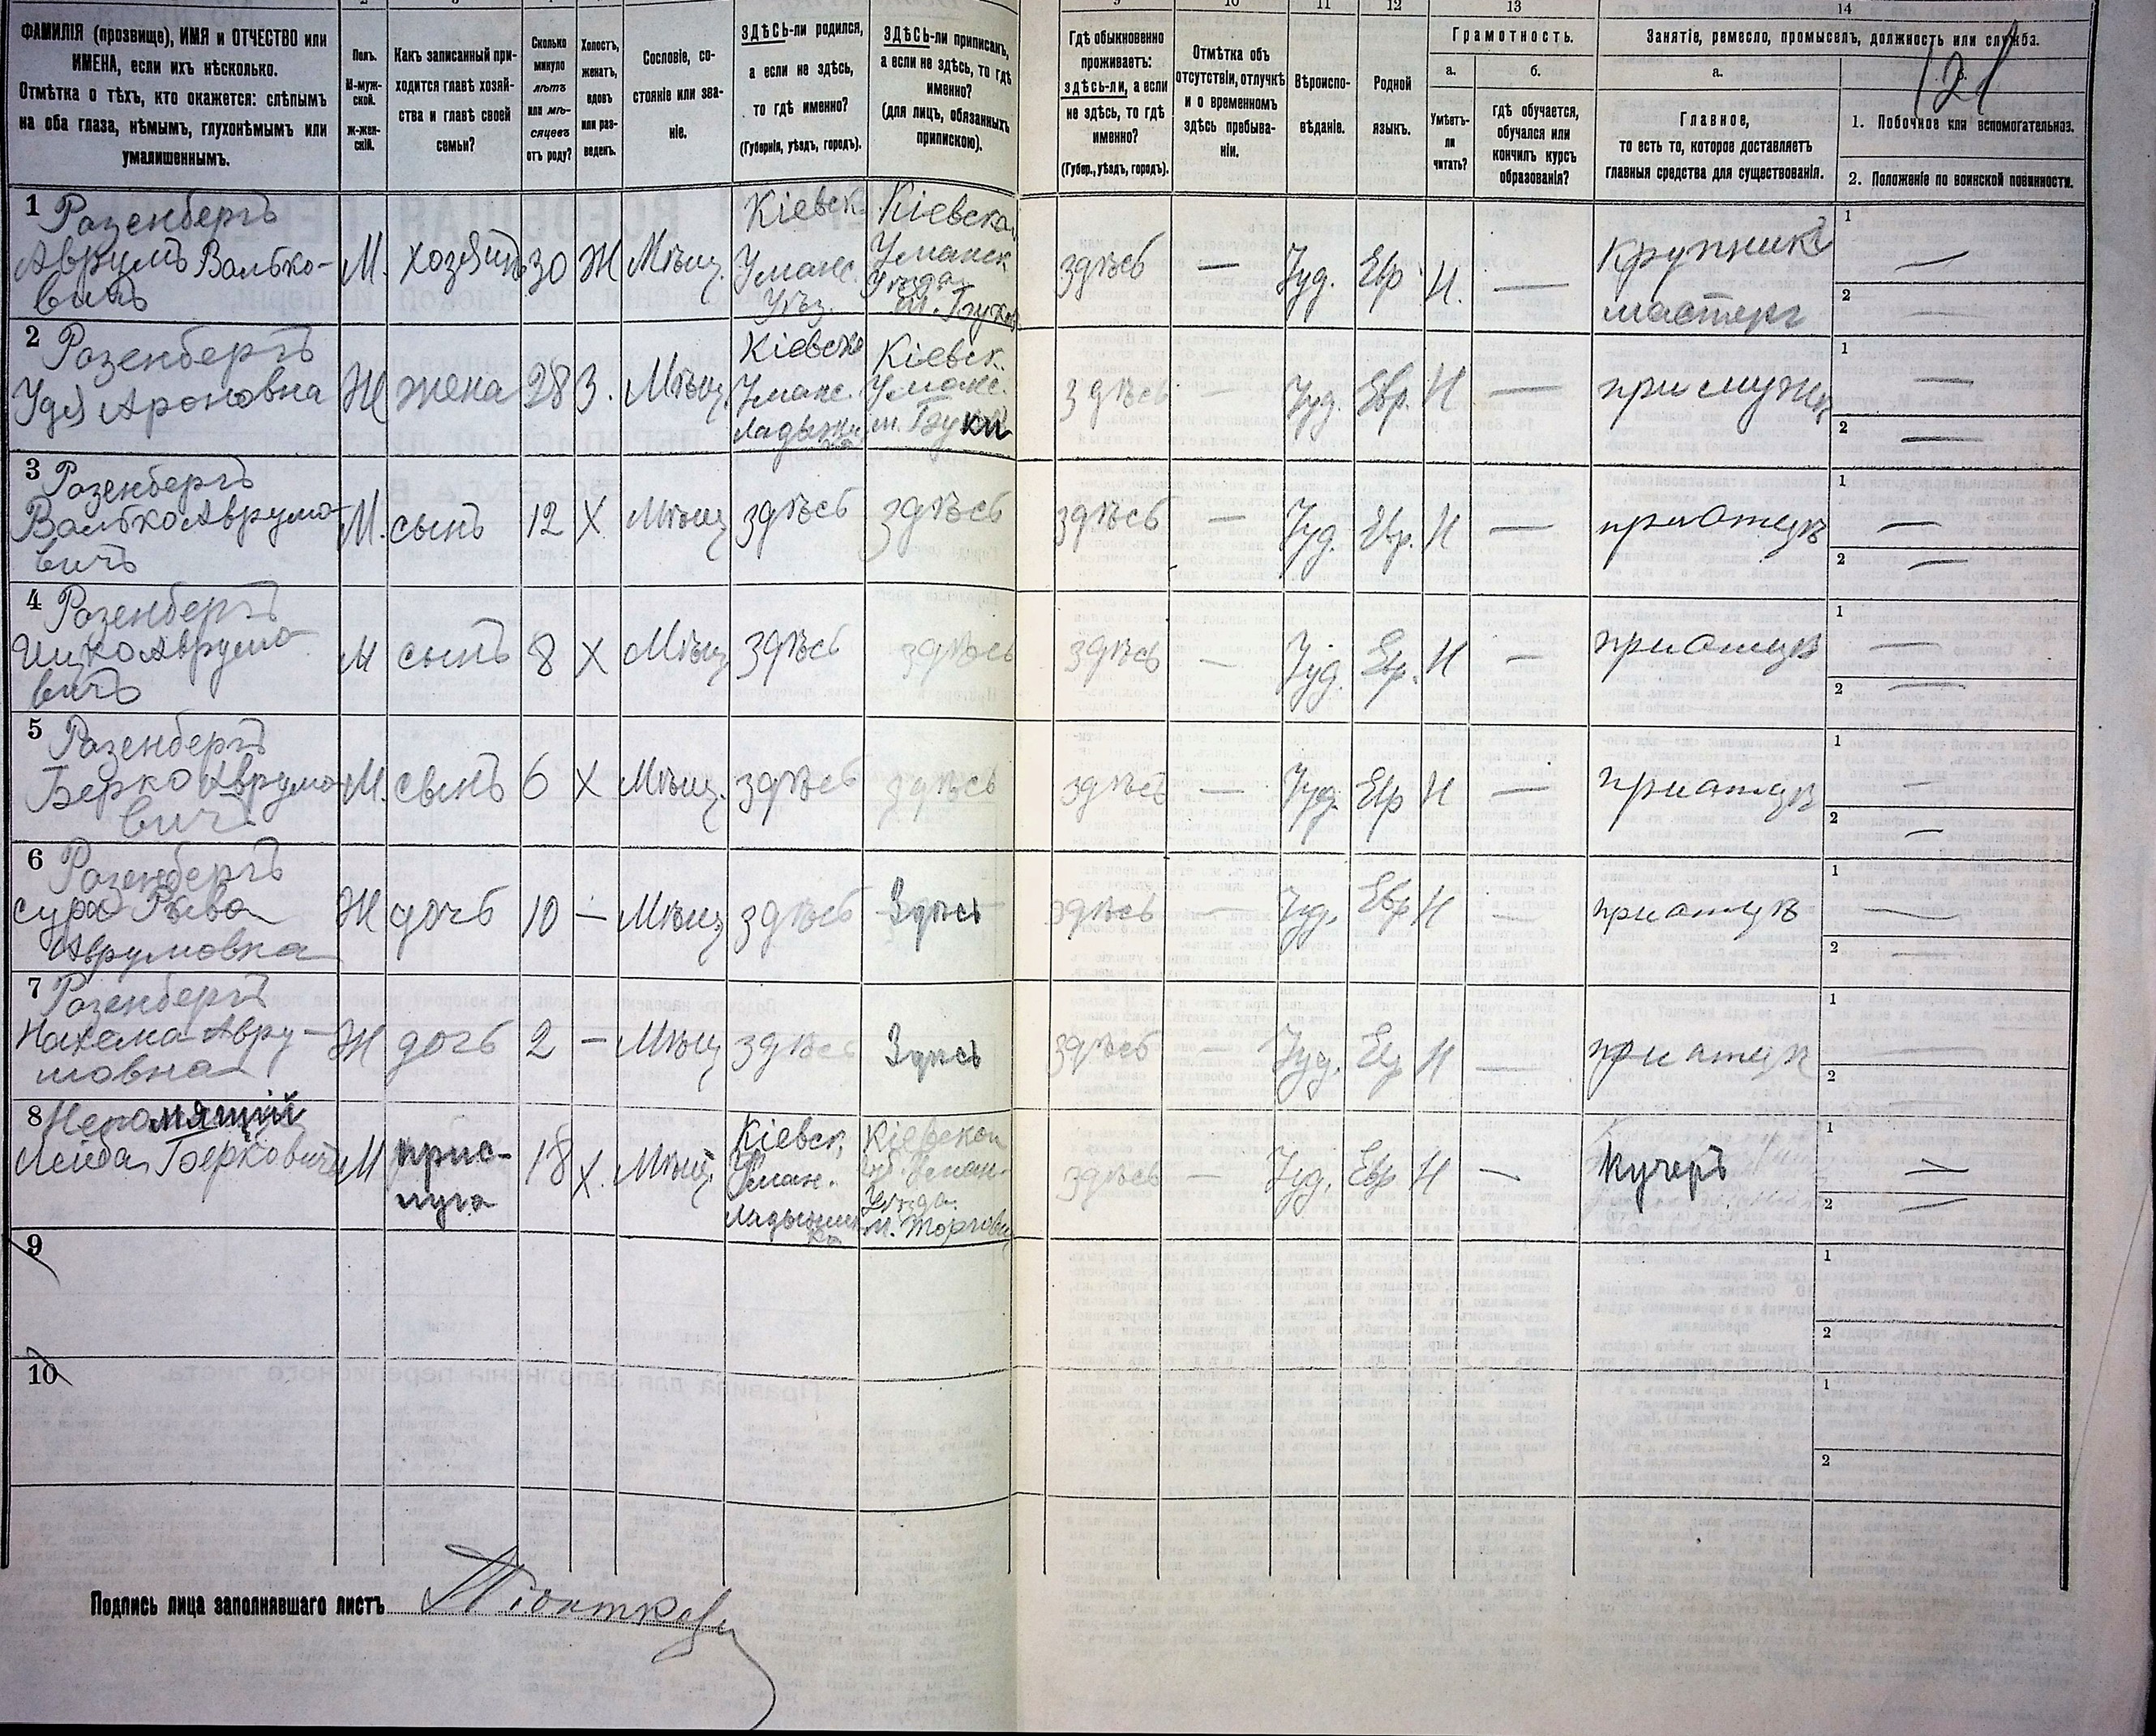 9 10 11 12 13 14
ФАМИЛІЯ (прозвище), ИМЯ и ОТЧЕСТВО или
ИМЕНА, если ихъ нѣсколько.
Отмѣтка о тѣхъ, кто окажется: слѣпымъ
на оба глаза, нѣмымъ, глухонѣмымъ или
умалишеннымъ.
Полъ.
М-муж-
ской.
Ж-жен-
скій.
Какъ записанный при-
ходится главѣ хозяй-
ства и главѣ своей
семьи?
Сколько
минуло
лѣтъ
или мѣ-
сяцевъ
отъ роду?
Холостъ,
женатъ,
вдовъ
или раз-
веденъ.
Сословіе, со-
стояніе или зва-
ніе.
ЗДѢСЬ-ли родился,
а если не здѣсь,
то гдѣ именно?
(Губернія, уѣздъ, городъ).
ЗДѢСЬ-ли приписанъ,
а если не здѣсь, то гдѣ
именно?
(для лицъ, обязанныхъ
припискою).
Гдѣ обыкновенно
проживаетъ:
здѣсь-ли, а если
не здѣсь, то гдѣ
именно?
(Губер., уѣздъ, городъ).
Отмѣтка объ
отсутствіи, отлучкѣ
и о временномъ
здѣсь пребыва-
ніи.
Вѣроиспо-
вѣданіе.
Родной
языкъ.
Грамотность.
а.
Умѣетъ-
ли
читать?
б.
гдѣ обучается,
обучался или
кончилъ курсъ
образованія?
Занятіе, ремесло, промыселъ, должность или служба.
а.
Главное,
то есть то, которое доставляетъ
главныя средства для существованія.
1. Побочное или вспомогательное.
2. Положеніе по воинской повинности.
1 Розенбергъ
Аврумъ Волько-
вичъ
М. хозяинъ 30 Ж Мѣщ.
Кіевск.
Уманс.
Уѣз.
Кіевской
Уманск
Уѣзда
м. Буки
здѣсь — Іуд. Евр Н. —
Крупникъ
мастеръ
1 —
2 —
2 Розенбергъ
Удя Ароновна
Ж жена 28 З. Мѣщ.
Кіевской
Уманс.
Кіевск.
Уманс.
м. Буки
здѣсь — Іуд. Евр. Н —
1 —
2 —
3 Розенбергъ
Волько Аврумо-
вичъ
М. сынъ 12 Х Мѣщ здѣсь здѣсь здѣсь — Іуд. Евр. Н — при отцѣ
1 —
2 —
4 Розенбергъ
Ицко Аврумо-
вичъ
М сынъ 8 Х Мѣщ здѣсь здѣсь здѣсь — Іуд. Евр. Н — при отцѣ
1 —
2 —
5 Розенбергъ
Берко Аврумо-
вич
М. сынъ 6 Х Мѣщ. здѣсь здѣсь здѣсь — Іуд. Евр Н — при отцѣ
1 —
2 —
6 Розенбергъ
Сура Рыва
Аврумовна
Ж дочь 10 — Мѣщ здѣсь Здѣсь здѣсь — Іуд. Евр Н — при отцѣ
1 —
2 —
7 Розенбергъ
Нахама Авру-
мовна
Ж дочь 2 — Мѣщ здѣсь Здѣсь здѣсь — Іуд. Евр Н — при отцѣ
1 —
2 —
8 Непомнящій
Лейба Берковичъ
М прис-
луга
18 Х. Мѣщ.
Кіевск.
Уман.
Кіевской
Уѣзда
м. Торговиц
здѣсь — Іуд. Евр Н — Кучеръ
1 —
2 —
9
1
2
10
1
2
Подпись лица заполнявшаго листъ